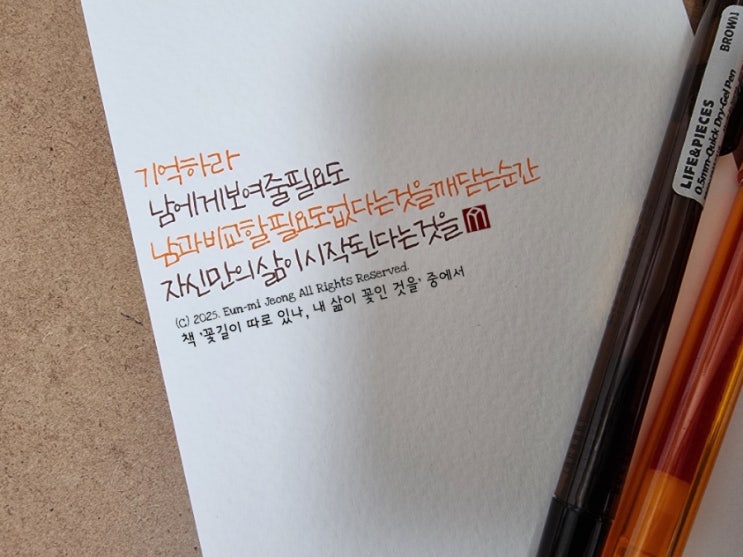 기억하라
남에게 보여줄 필요도
남과 비교할 필요도 없다는 것을 깨닫는 순간
자신만의 삶이 시작된다는 것을
(C) 2025. Eun-mi Jeong All Rights Reserved.
책 '꽃길이 따로 있나, 내 삶이 꽃인 것을' 중에서
LIFE&PIECES
BROWN
0.5mm Quick Dry Gel Pen